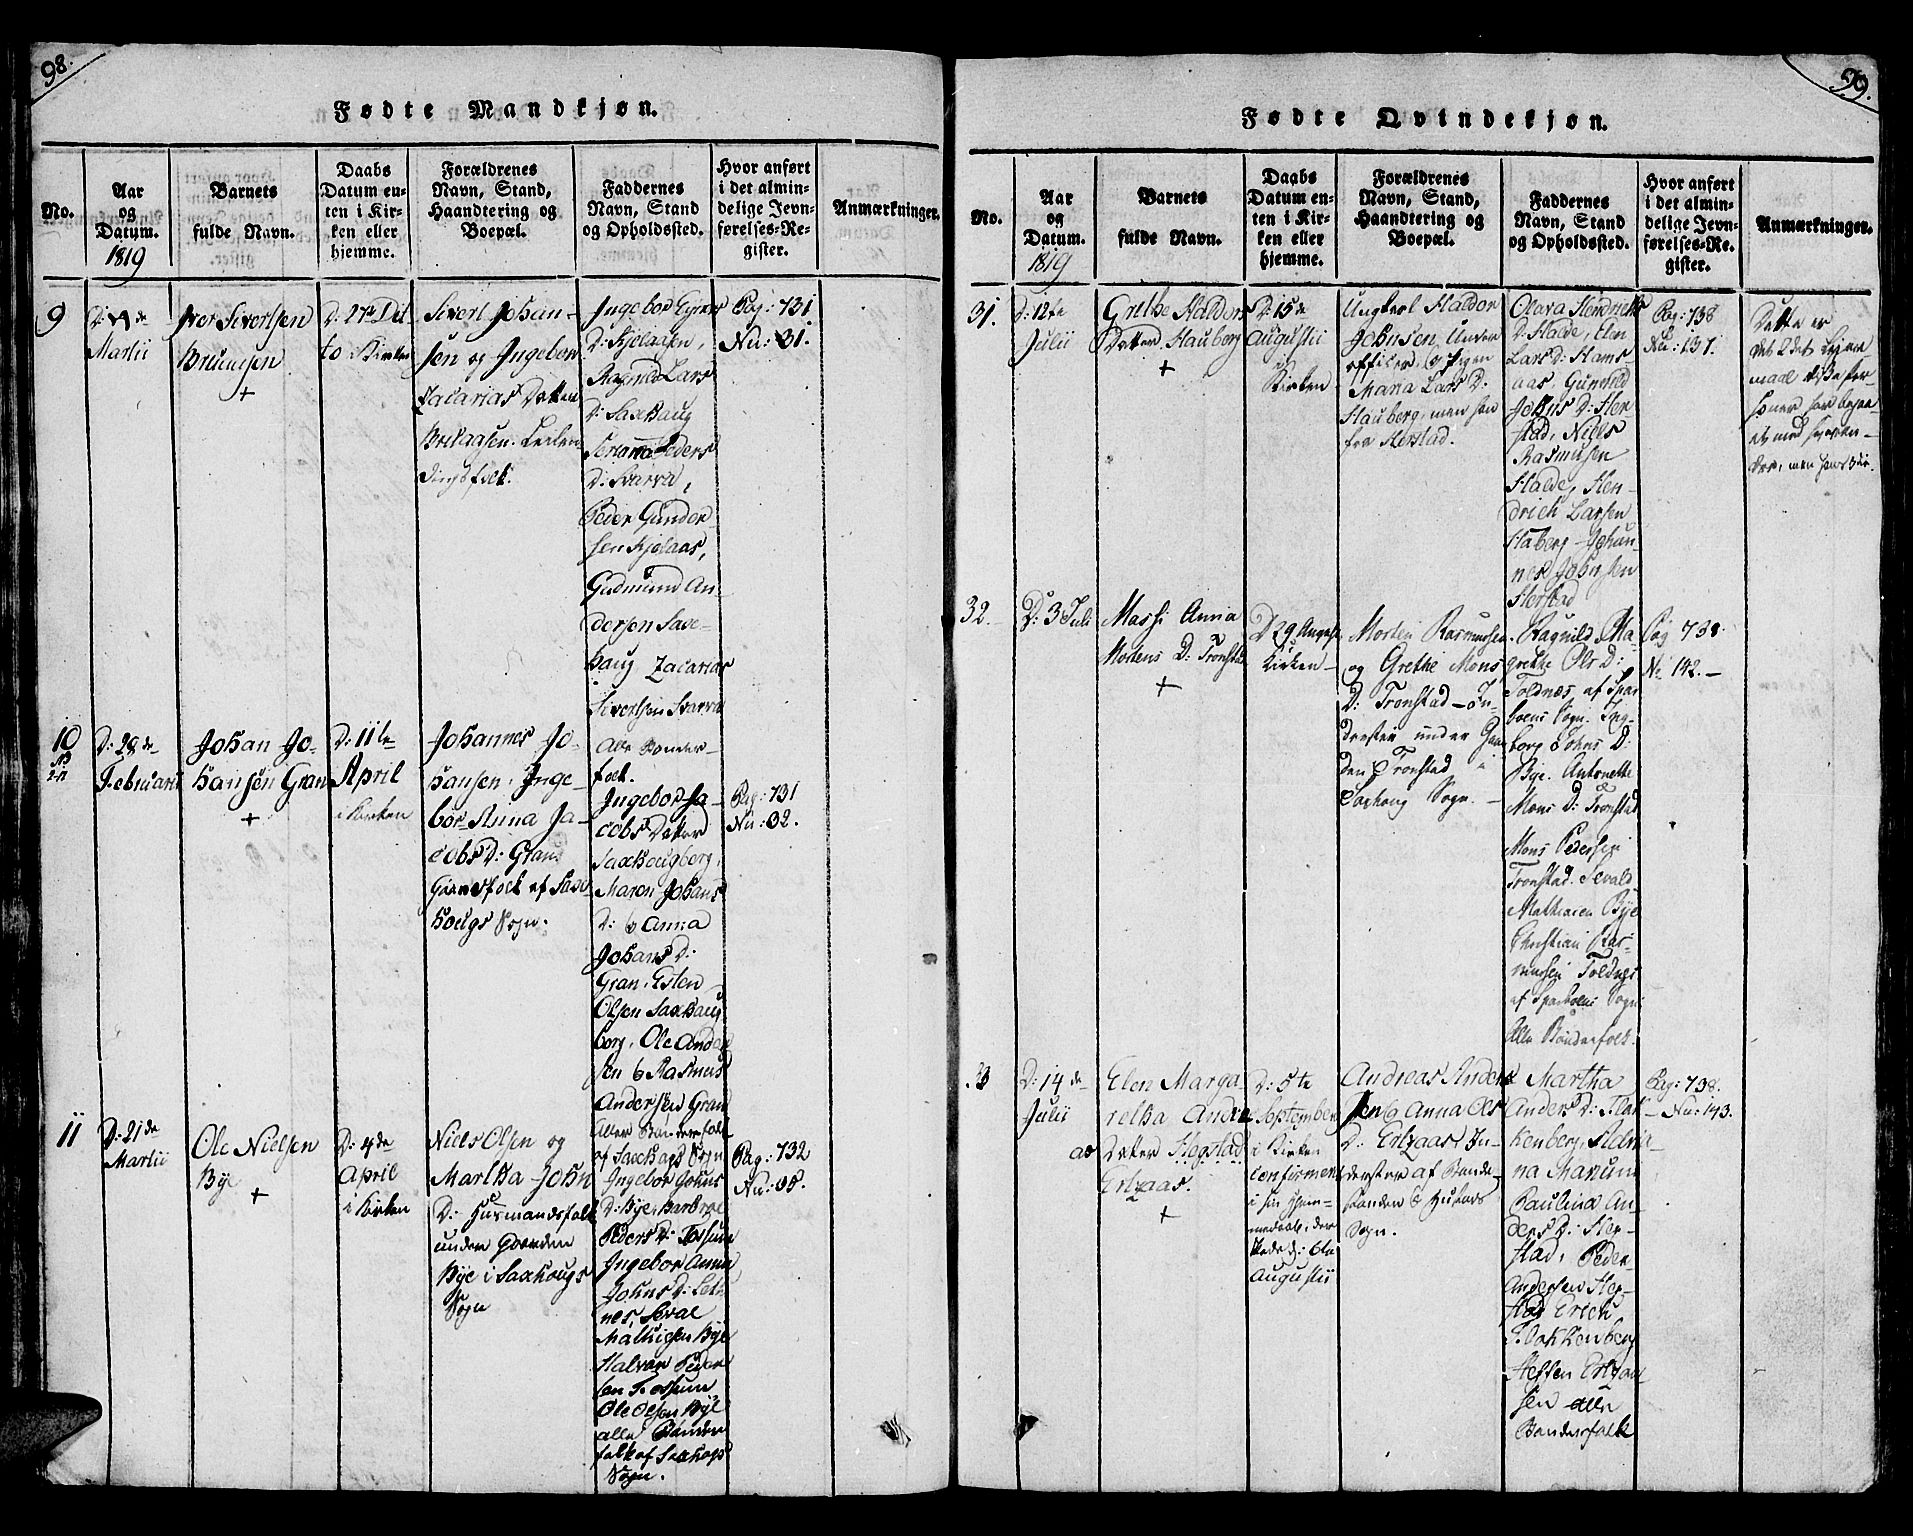 98.
Fødte Mandkjøn.
No.
Aar
og
Datum.
1819
Barnets
fulde Navn.
Daabs
Datum en-
ten i Kir-
ken eller
hjemme.
Forældrenes
Navn, Stand,
Haandtering og
Boepæl.
Faddernes
Navn, Stand
og Opholdssted.
Hvor anført
i det almin-
delige Jevn-
førelses-Re-
gister.
Anmærkninger.
9
Martii
Iver Sivertsen
+
Sivert Johan-
sen og Ingebor
Zacarias Datter
Ingebor
D: Kjelaasen,
Ragnild Lars
D: Saxhaug
Peders
D: Svarva,
Peder Gunder-
sen Kjelaas,
Gudmund An-
dersen Saxe-
haug Zacarias
Sivertsen Svarva
Alle Bønder-
folk.
Pag: 731
Nu: 31.
10
D: 28de
Februarii
Johan Jo-
hansen Gran
+
D: 11te
April
i Kirken
Johannes Jo-
hansen, Inge-
bor Anna Ja-
cobs D: Gran
Ingebor Ja-
cobs Datter
Saxhougberg,
Maren Johans
D: & Anna
Johans D:
Gran, Esten
Olsen Saxhaug
berg, Ole Ander
sen & Rasmus
Andersen Gran
af Saxhougs Sogn
Pag: 731
Nu: 32.
11
D: 21de
Martii
Ole Nielsen
Bye
+
D: 4de
April
i Kirken
Niels Olsen og
Martha John
D: Huusmandsfolk
under Gaarden
Bye i Saxhougs
Sogn
Ingebor Johns
D: Bye,
Peders D: Tossum
Ingebor Anna
Johns D: Let-
nes, Seval
Mathiesen Bye
Halvor Peder
sen Tossum
Ole Olsen Bye
alle Bønder
folk af Saxhougs
Sogn.
Pag: 732
Nu: 35.
99.
Fødte Qvindekjøn.
No.
Aar
og
Datum.
1819
Barnets
fulde Navn.
Daabs
Datum en-
ten i Kir-
ken eller
hjemme.
Forældrenes
Navn, Stand,
Haandtering og
Boepæl.
Faddernes
Navn, Stand
og Opholdssted.
Hvor anført
i det almin-
delige Jevn-
førelses-Re-
gister.
Anmærkninger.
31.
D: 12te
Julii
Grethe Haldors
Datter Hauberg
+
D: 15de
Augustii
i
Kirken
Ungkarl Haldor
Johnsen, Under
officier, og Pigen
Maria Lars D:
Hauberg, men han
fra Herstad.
Olava Hendrichs
D: Halde, Elen
Lars D: Hams
aas Gunnild
Johns D: Her
stad, Niels
Rasmusen
Halde, Hen-
drich Larsen
Haberg Johan-
nes Johnsen
Herstad
Pag: 738
Nu: 137.
Dette er
det 2det Leier
maal disse Per-
soner har begaa-
et med hveran-
dre,
32.
D: 3 Juli
Massi Anna
Mortens D: Tronstad
+
D 29 August
Kirken
Morten Rasmussen
og Grethe Mons
D: Tronstad In-
derster under Gaar
den Tronstad i
Saxhoug Sogn.
Ragnild Ma
grethe Ols D:
Toldnæs, af Spar
boens Sogn. Ing-
borg Johns D:
Bye. Antonette
Mons D: Tronstad
Mons Pedersen
Tronstad. Sevald
Mathiesen Bye
Christian Ras-
mussen Toldnæs
af Sparboens Sogn
Alle Bønderfolk.
Pag 738
No 142.
33
D: 14de
Julii
Elen Marga
retha Andre
as
Datter Hegstad
Ertzaas.
+
D: 5te
September
i Kirken
confirmeret
i sin Hjem-
medaab, der
skede d: 6te
Augustii
Andreas Anders
sen & Anna Ols
D: Ertzaas In-
derster af Bonde-
standen &
Sogn.
Martha
Anders D: Flak
kenberg, Andria-
na Maxum
Paulina An-
ders D: Heg-
stad, Peder
Andersen Heg-
stad Erich
Flakkenberg
Steffen Ertzaa-
sen alle
Bønderfolk
Pag: 738.
Nu: 143.